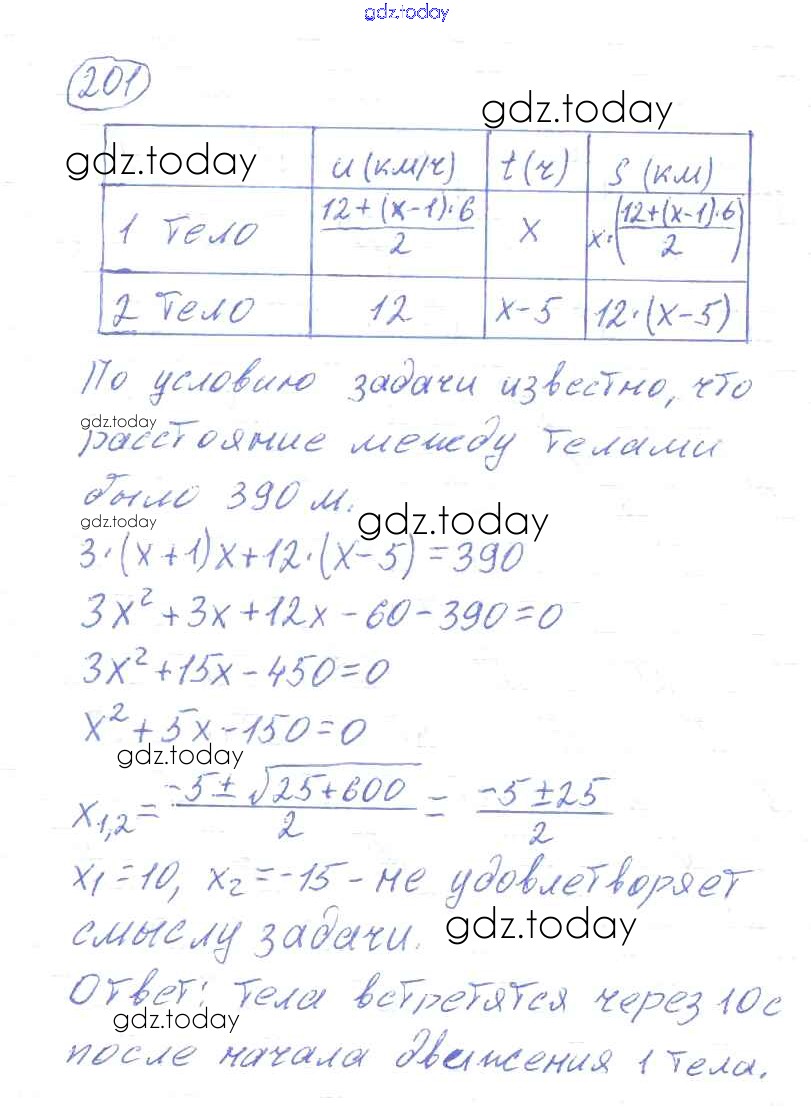 gdz.today
201
gdz.today
gdz.today
u (км/ч) t (ч) S (км)
1 тело (12+(x-1)·6)/2 x x·((12+(x-1)·6)/2)
2 тело 12 x-5 12·(x-5)
По условию задачи известно, что
gdz.today
расстояние между телами
было 390 м.
gdz.today
gdz.today
3·(x+1)x+12·(x-5)=390
3x²+3x+12x-60-390=0
3x²+15x-450=0
x²+5x-150=0
gdz.today
x₁,₂=(-5±√(25+600))/2=(-5±25)/2
x₁=10, x₂=-15-не удовлетворяет
смыслу задачи.
gdz.today
Ответ: тела встретятся через 10 с
gdz.today
после начала движения 1 тела.